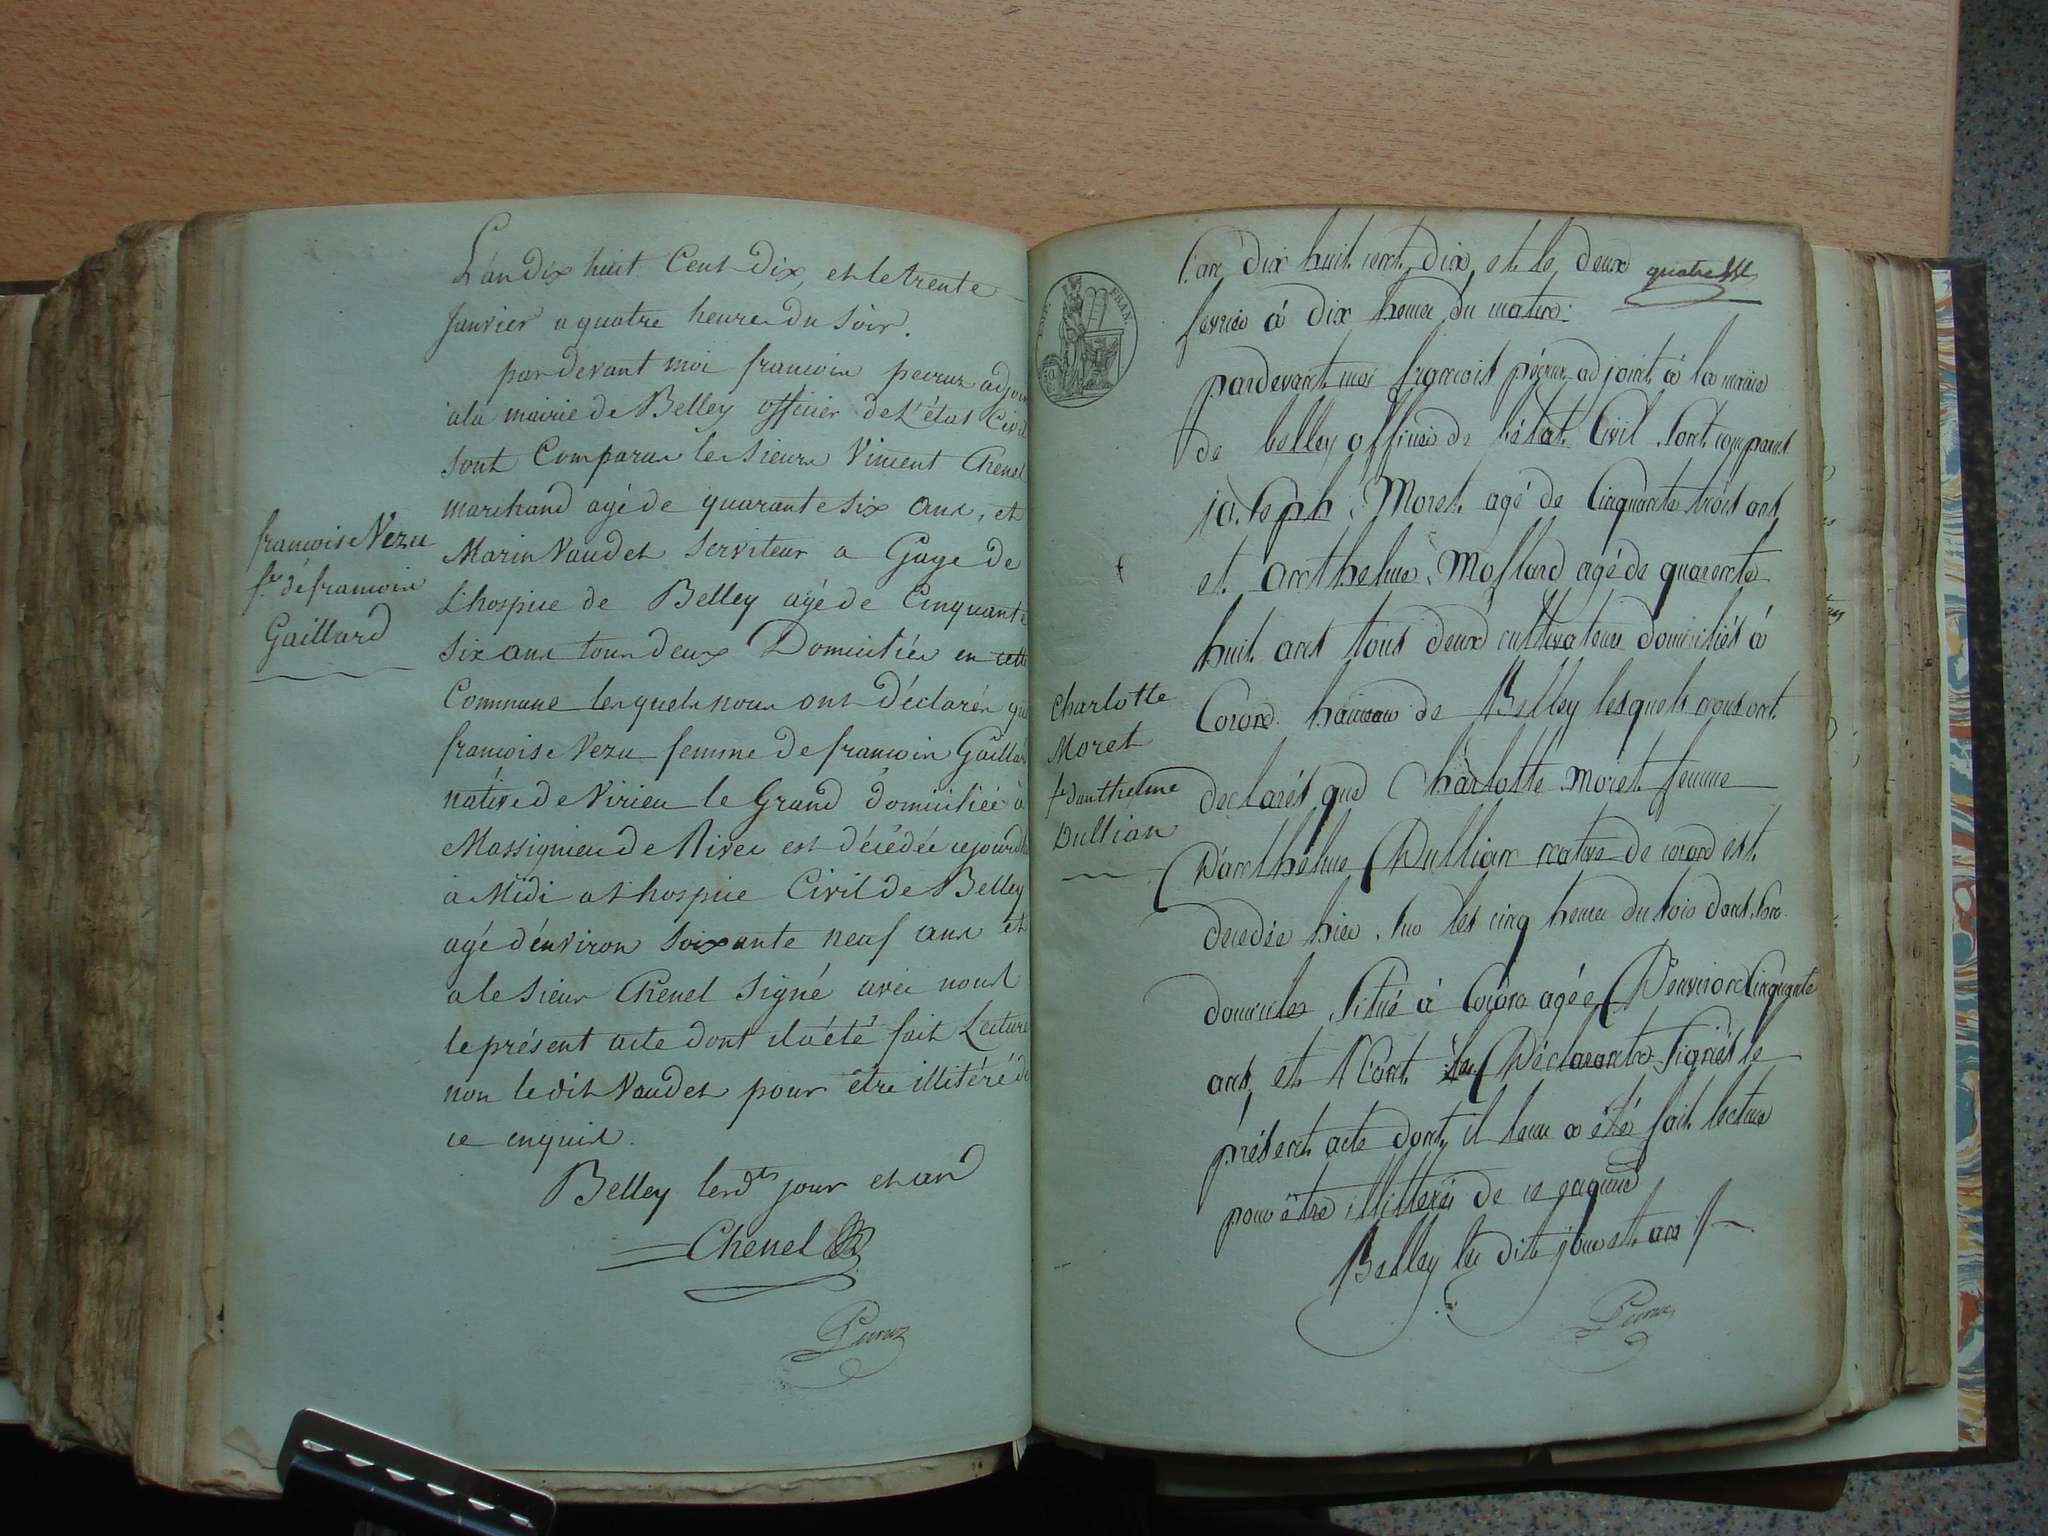 L'an Dix huit Cent Dix, et le trente
Janvier a quatre heures du Soir.
par devant moi francois peyruz adjoin
a la mairie de Belley officier de L'état Civil
sont Comparus les sieurs Vincent Chenel
marchand agé de quarante six ans, et
Marin Vaudet Serviteur a Gage de
L'hospice de Belley agé de Cinquante
six ans tous deux Domiciliés en cette
Commune lesquels nous ont Déclarés que
francoise Vezu femme de francois Gaillard
native de Virieu le Grand domiciliée à
Massignieu de Rives est décédée cejourd'hui
à Midi a l'hospice Civil de Belley
agé d'environ soixante neuf ans et
a le sieur Chenel signé avec nous
le présent acte dont il a été fait Lecture
non le dit Vaudet pour être illitéré de
ce enquis.
Belley les dts jour et an
Chenel
francoise Vezu
fe. de francois
Gaillard
L'an dix huit cent dix, et le deux
fevrier à dix heures du matin.
EMP. FRAN.
pardevant moi francois peyruz adjoint à la mairie
de belley officier de l'état Civil Sont comparus
joseph Moret agé de Cinquante trois ans
et anthelme Mollard agé de quarente
huit ans tous deux cultivateurs domiciliés à
Coron hameau de Belley lesquels nous ont
declarés que Charlotte Moret femme
D'anthelme Dullian native de coron est
decedée hier sur les cinq heures du soir dans son
domicile situé à Coron agée D'environ Cinquante
ans, et N'ont les Déclarants Signés le
présent acte dont il leur a été fait lecture
pour être illitterés de ce enquis
Belley les dits jour et an
Charlotte
Moret
fe d'anthelme
Dullian